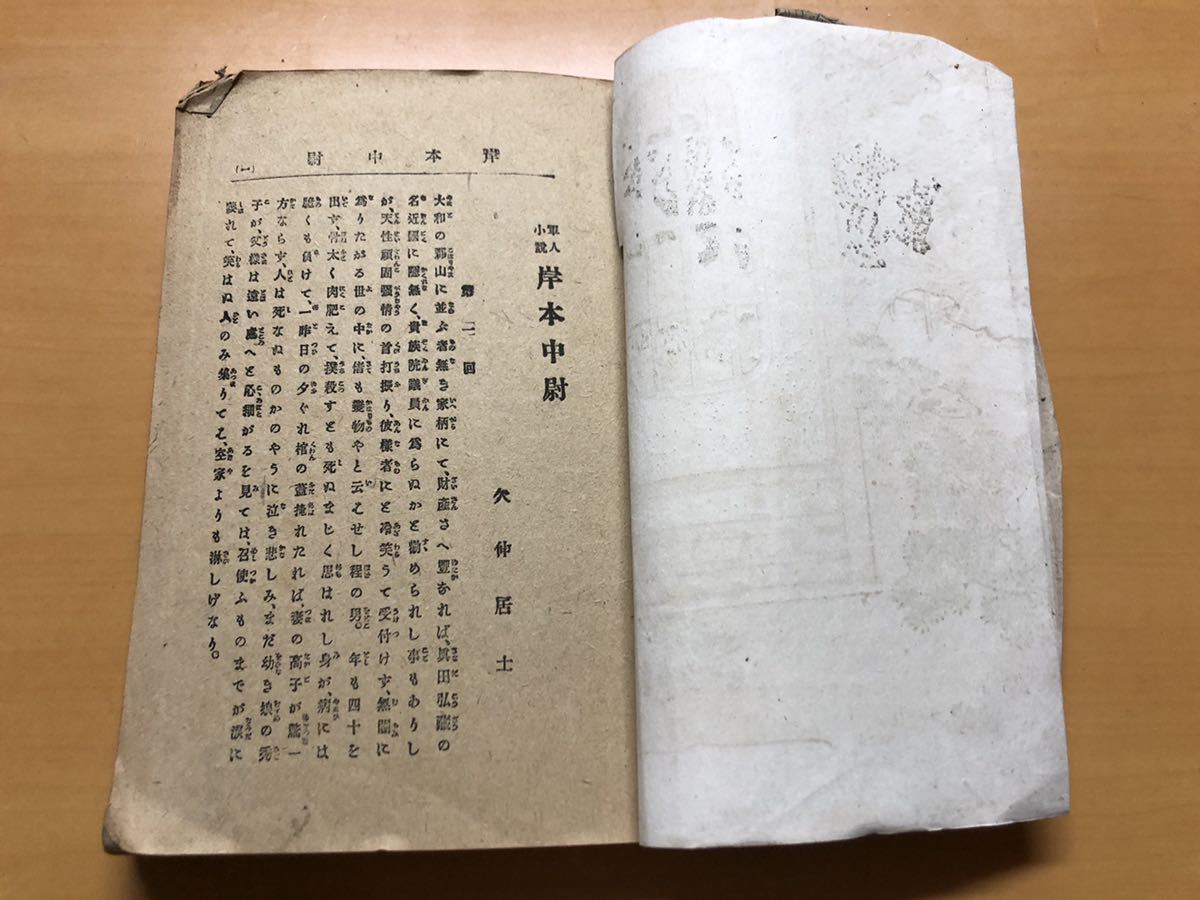 岸本中尉
(一)
軍人小説
岸本中尉
欠伸居士
第一回
大和の郡山に並ぶ者無き家柄にて、財産さへ豐かれば、眞田弘藏の
名近國に隱無く、貴族院議員に爲らぬかと勸められし事もありし
が、天性頑固强情の首打振り、彼樣者にと冷笑うて受付けず、無闇に
爲りたがる世の中に、偖も變物やと云はせし程の男。年も四十を
出ず、骨太く肉肥えて、撲殺すとも死ぬまじく思はれし身が、病には
脆くも負けて、一昨日の夕ぐれ棺の蓋掩れたれば、妻の高子が驚一
方ならず、人は死なぬものかのやうに泣き悲しみ、まだ幼き娘の秀
子が、父樣は遠い處へと必細がるを見ては、召使ふものまでが淚に
暮れて、笑はぬ人のみ集りてえ、空家よりも淋しげなり。